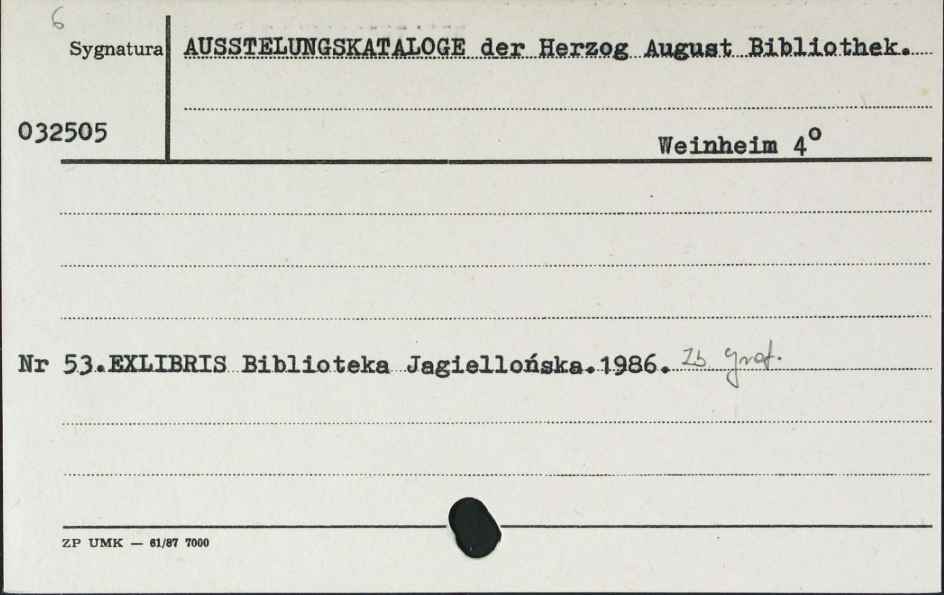 6
Sygnatura AUSSTELUNGSKATALOGE der Herzog August Bibliothek.
032505
Weinheim 4º
Nr 53.EXLIBRIS Biblioteka Jagiellońska.1986. Zb graf.
ZP UMK — 61/87 7000